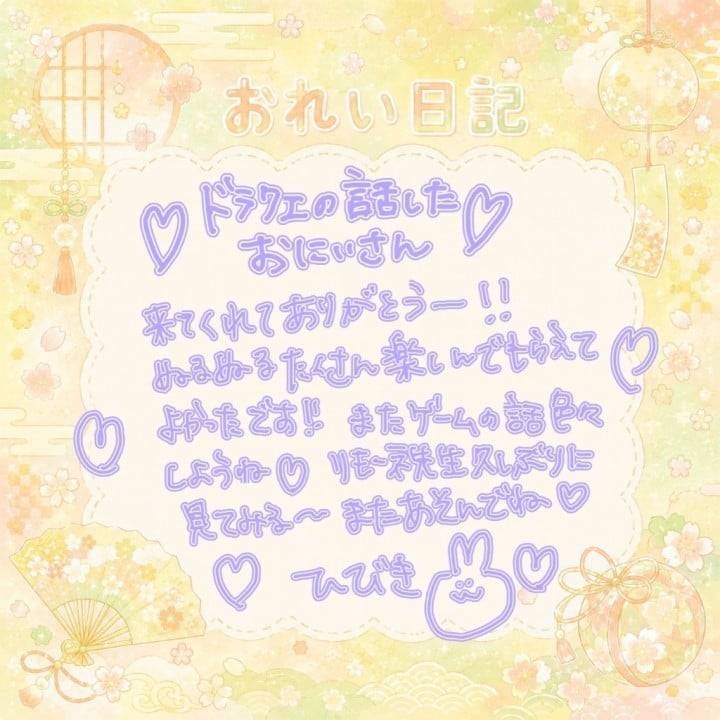 おれい日記
ドラクエの話した
おにぃさん
来てくれてありがとうー!!
ぬるぬるたくさん楽しんでもらえて
よかったです!! またゲームの話色々
しようね♡ リモー祢先生久しぶりに
見てみる〜 またあそんでね♡
ひびき